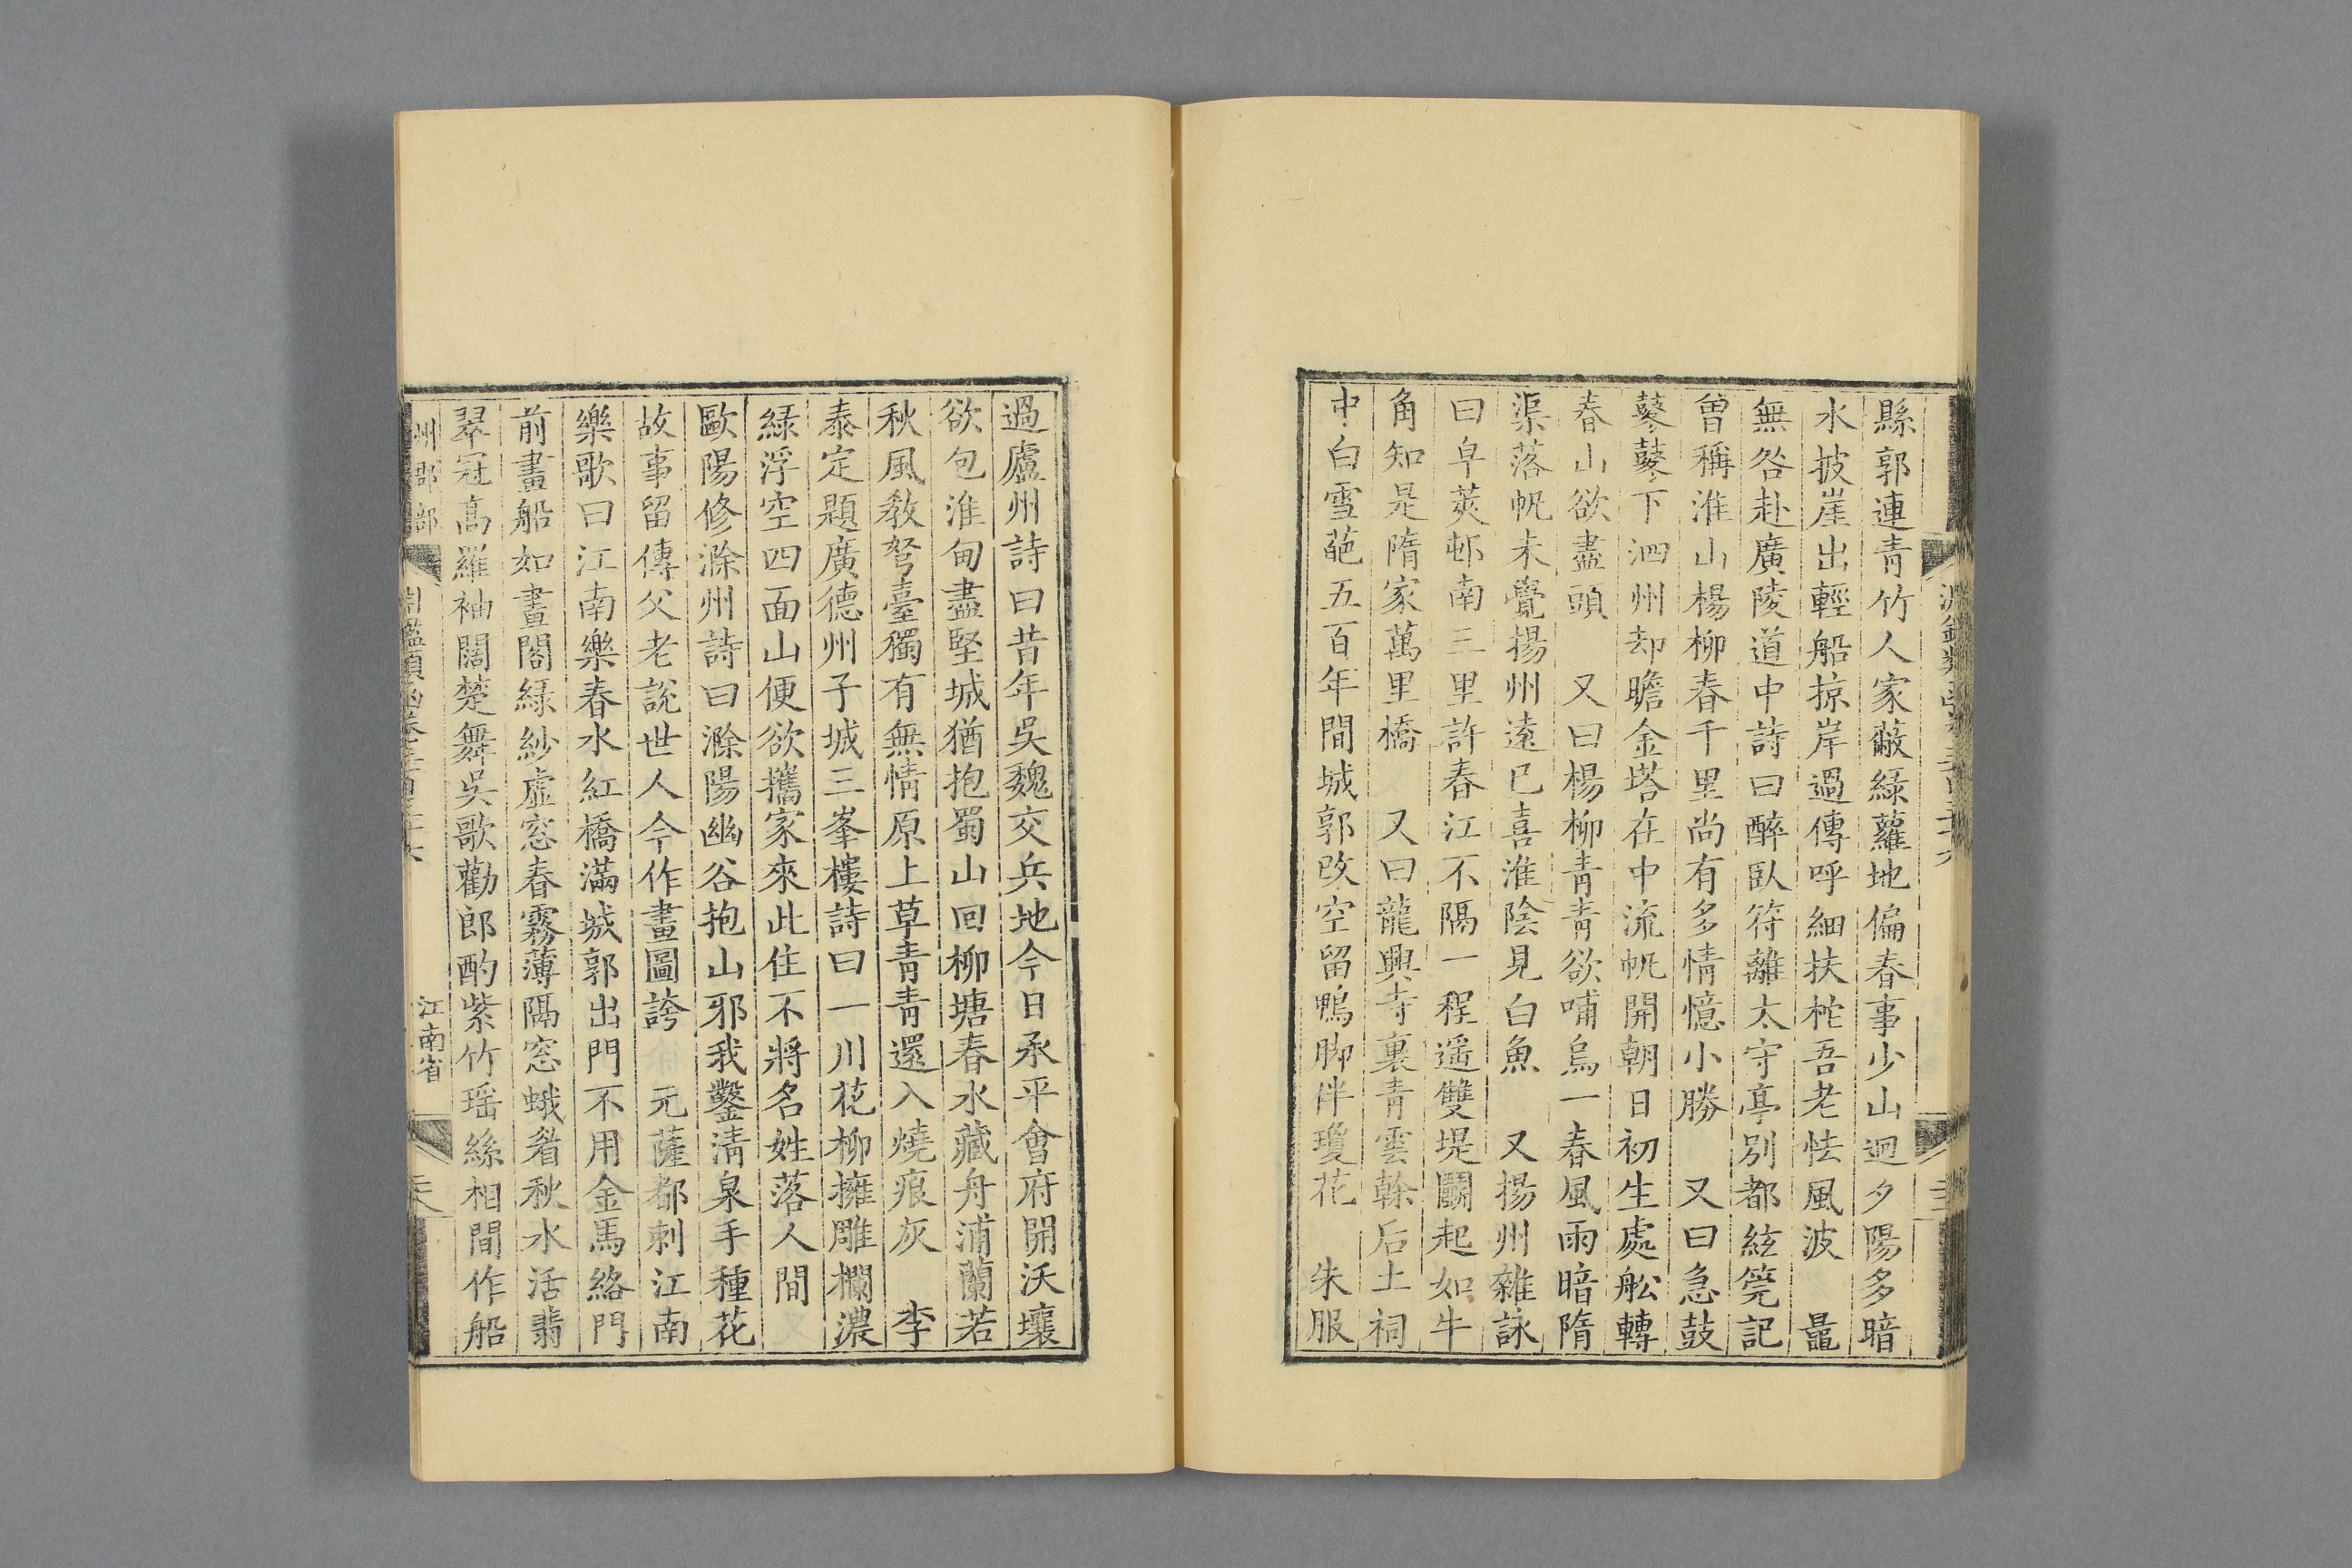 縣郭連青竹人家蔽綠蘿地偏春事少山迥夕陽多暗
水披崖出輕船掠岸過傳呼細扶柁吾老怯風波　鼂
無咎赴廣陵道中詩曰醉臥符離太守亭別都絃筦記
曾稱淮山楊柳春千里尚有多情憶小勝　又曰急鼓
鼕鼕下泗州却瞻金塔在中流帆開朝日初生處舩轉
春山欲盡頭　又曰楊柳青青欲哺烏一春風雨暗隋
渠落帆未覺揚州遠已喜淮陰見白魚　又揚州雜詠
曰皁莢邨南三里許春江不隔一程遥雙堤鬭起如牛
角知是隋家萬里橋　又曰龍興寺裏青雲榦后土祠
中白雪葩五百年間城郭改空留鴨脚伴瓊花　朱服
過廬州詩曰昔年吳魏交兵地今日承平會府開沃壤
欲包淮甸盡堅城猶抱蜀山回柳塘春水藏舟浦蘭若
秋風敎弩臺獨有無情原上草青青還入燒痕灰　李
泰定題廣德州子城三峯樓詩曰一川花柳擁雕欄濃
綠浮空四面山便欲攜家來此住不將名姓落人間
歐陽修滁州詩曰滁陽幽谷抱山邪我鑿淸泉手種花
故事留傳父老說世人今作畫圖誇　元薩都刺江南
樂歌曰江南樂春水紅橋滿城郭出門不用金馬絡門
前畫船如畫閣綠紗虛窓春霧薄隔窓蛾眉秋水活翡
翠冠高羅袖闊楚舞吳歌勸郎酌紫竹瑤絲相間作船
州郡部
江南省